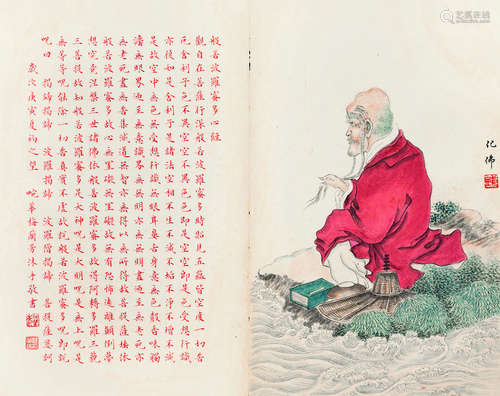 般若波羅蜜多心經
觀自在菩薩行深般若波羅蜜多時照見五蘊皆空度一切苦
厄舍利子色不異空空不異色色即是空空即是色受想行識
亦復如是舍利子是諸法空相不生不滅不垢不淨不增不減
是故空中無色無受想行識無眼耳鼻舌身意無色聲香味觸
法無眼界乃至無意識界無無明亦無無明盡乃至無老死亦
無老死盡無苦集滅道無智亦無得以無所得故菩提薩埵依
般若波羅蜜多故心無罣礙無罣礙故無有恐怖遠離顛倒夢
想究竟涅槃三世諸佛依般若波羅蜜多故得阿耨多羅三藐
三菩提故知般若波羅蜜多是大神呪是大明呪是無上呪是
無等等呪能除一切苦真實不虛故說般若波羅蜜多呪即說
呪曰 揭諦揭諦 波羅揭諦 波羅僧揭諦 菩提薩婆訶
歲次庚寅夏月之望 畹華梅蘭芳沐手敬書
佛
艺狐在线